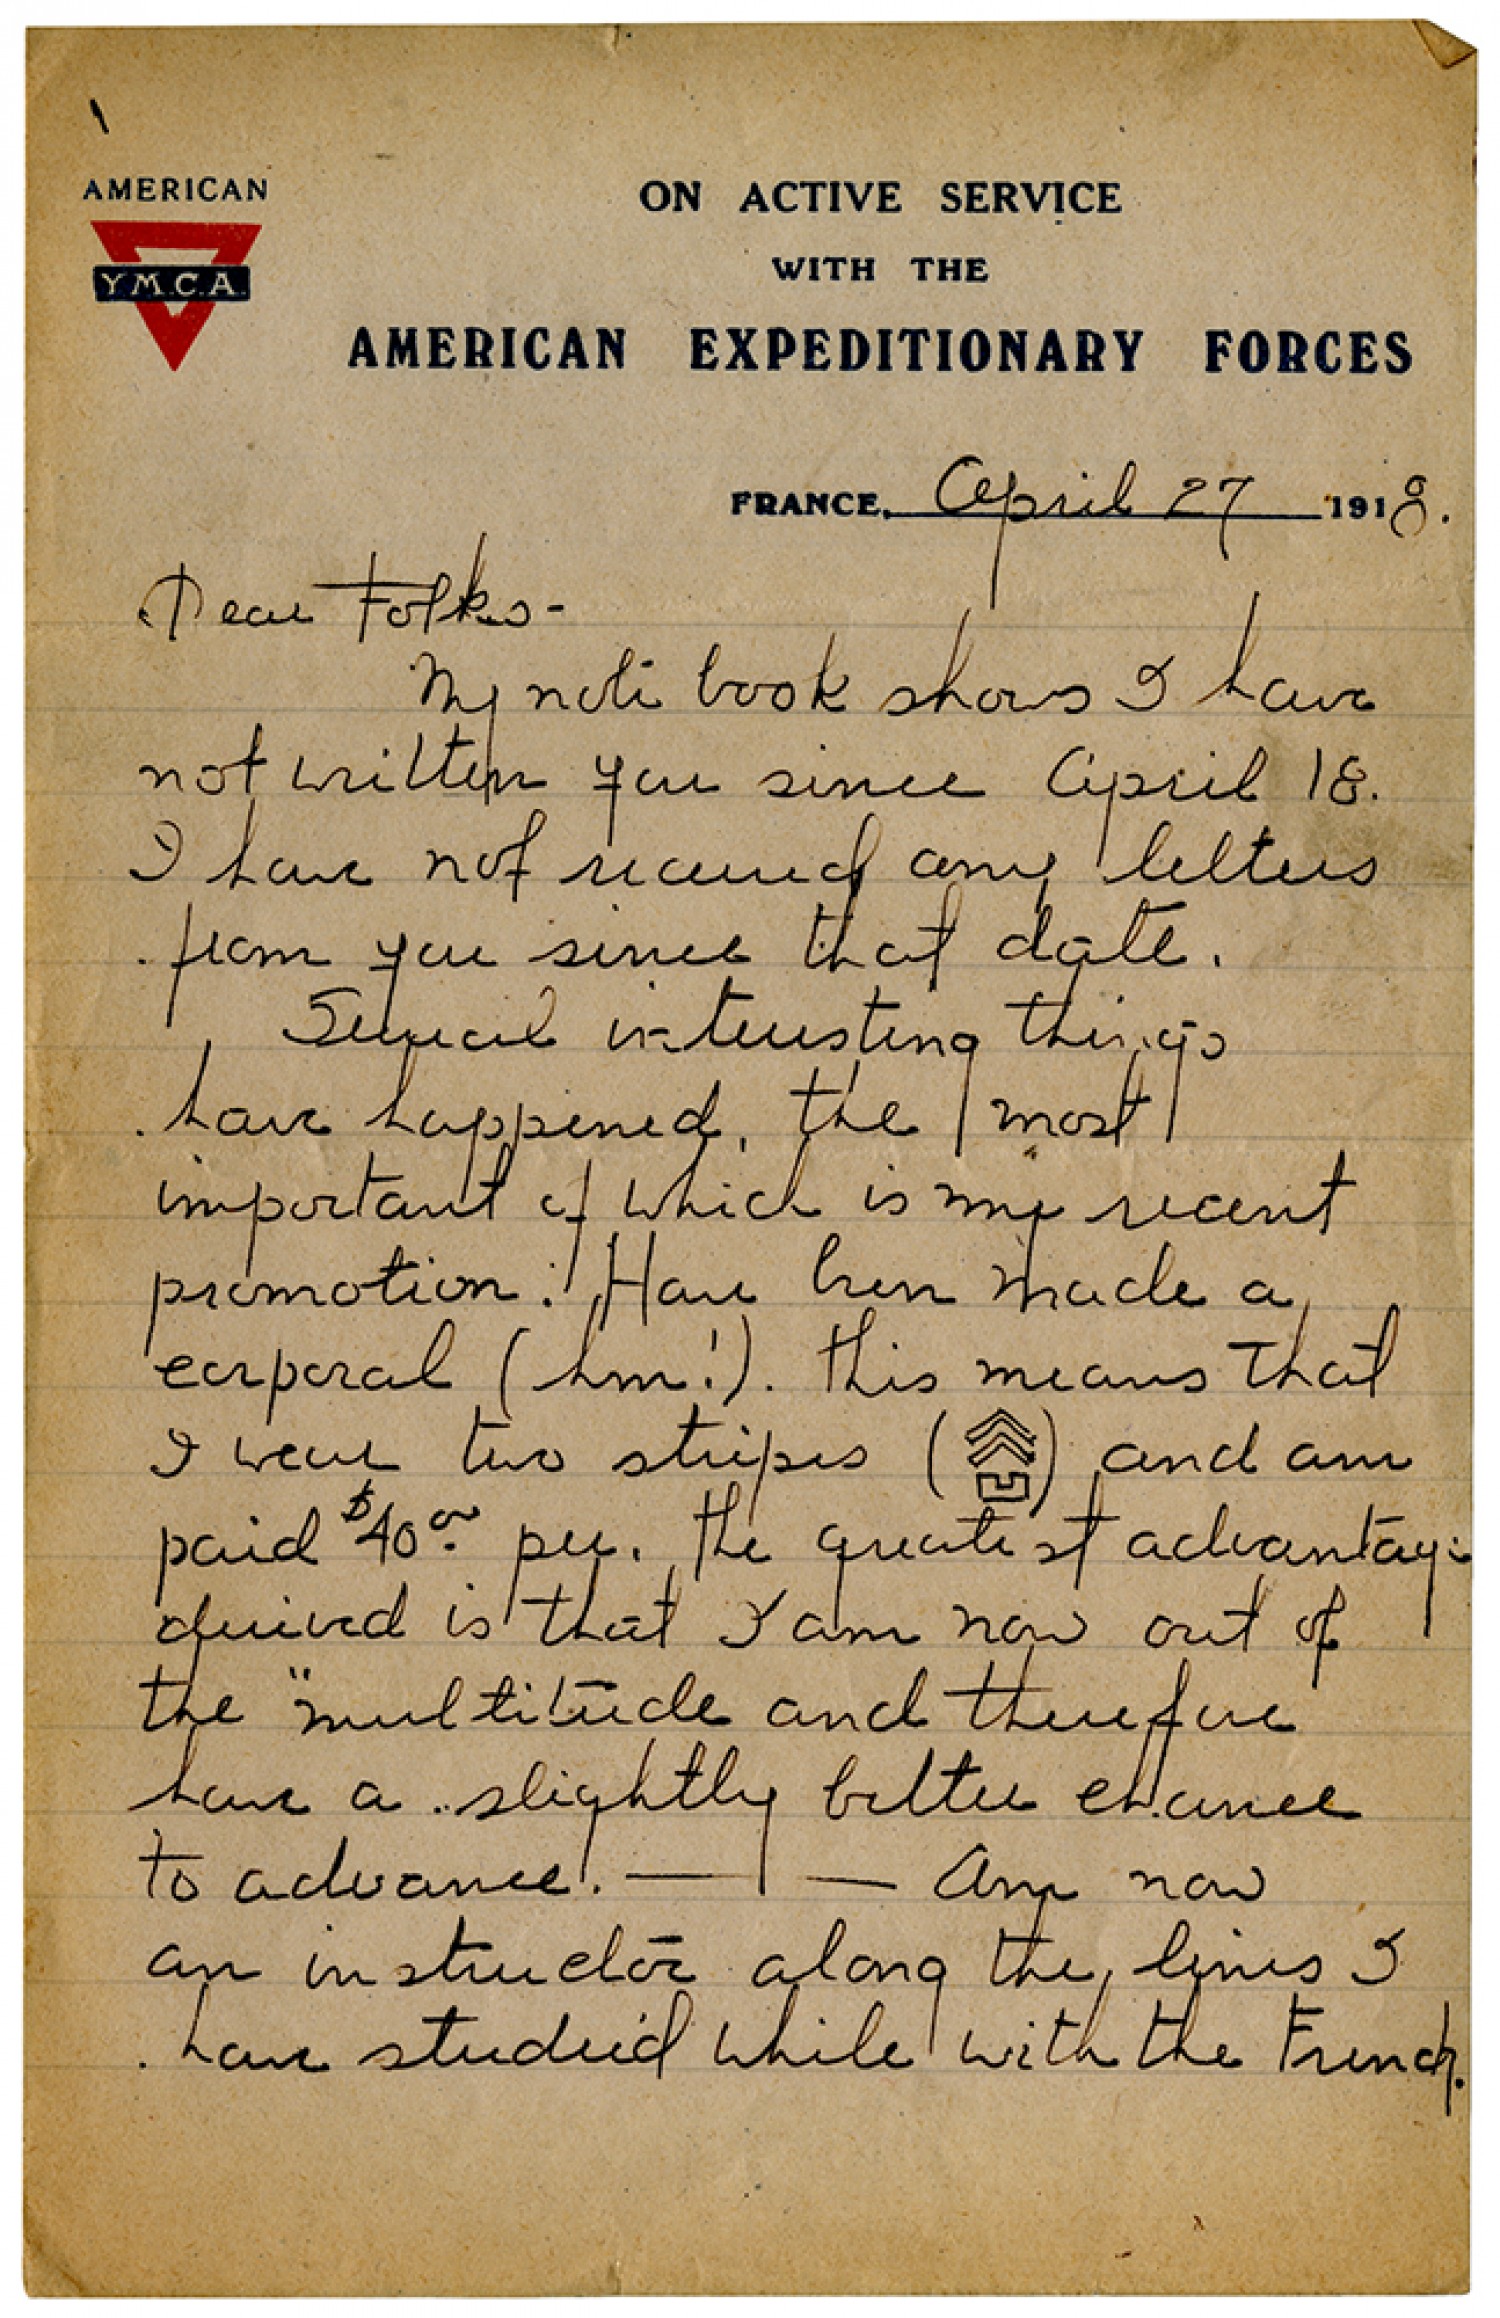 AMERICAN
Y.M.C.A.
ON ACTIVE SERVICE
WITH THE
AMERICAN EXPEDITIONARY FORCES
FRANCE, April 27 1918.
Dear Folks-
My note book shows I have
not written you since April 18.
I have not received any letters
from you since that date.
Several interesting things
have happened, the most
important of which is my recent
promotion. Have been made a
corporal (hm!). This means that
I wear two stripes ( ) and am
paid $40.00 per. The greatest advantage
derived is that I am now out of
the "multitude and therefore
have a slightly better chance
to advance. — — Am now
an instructor along the lines I
have studied while with the French.